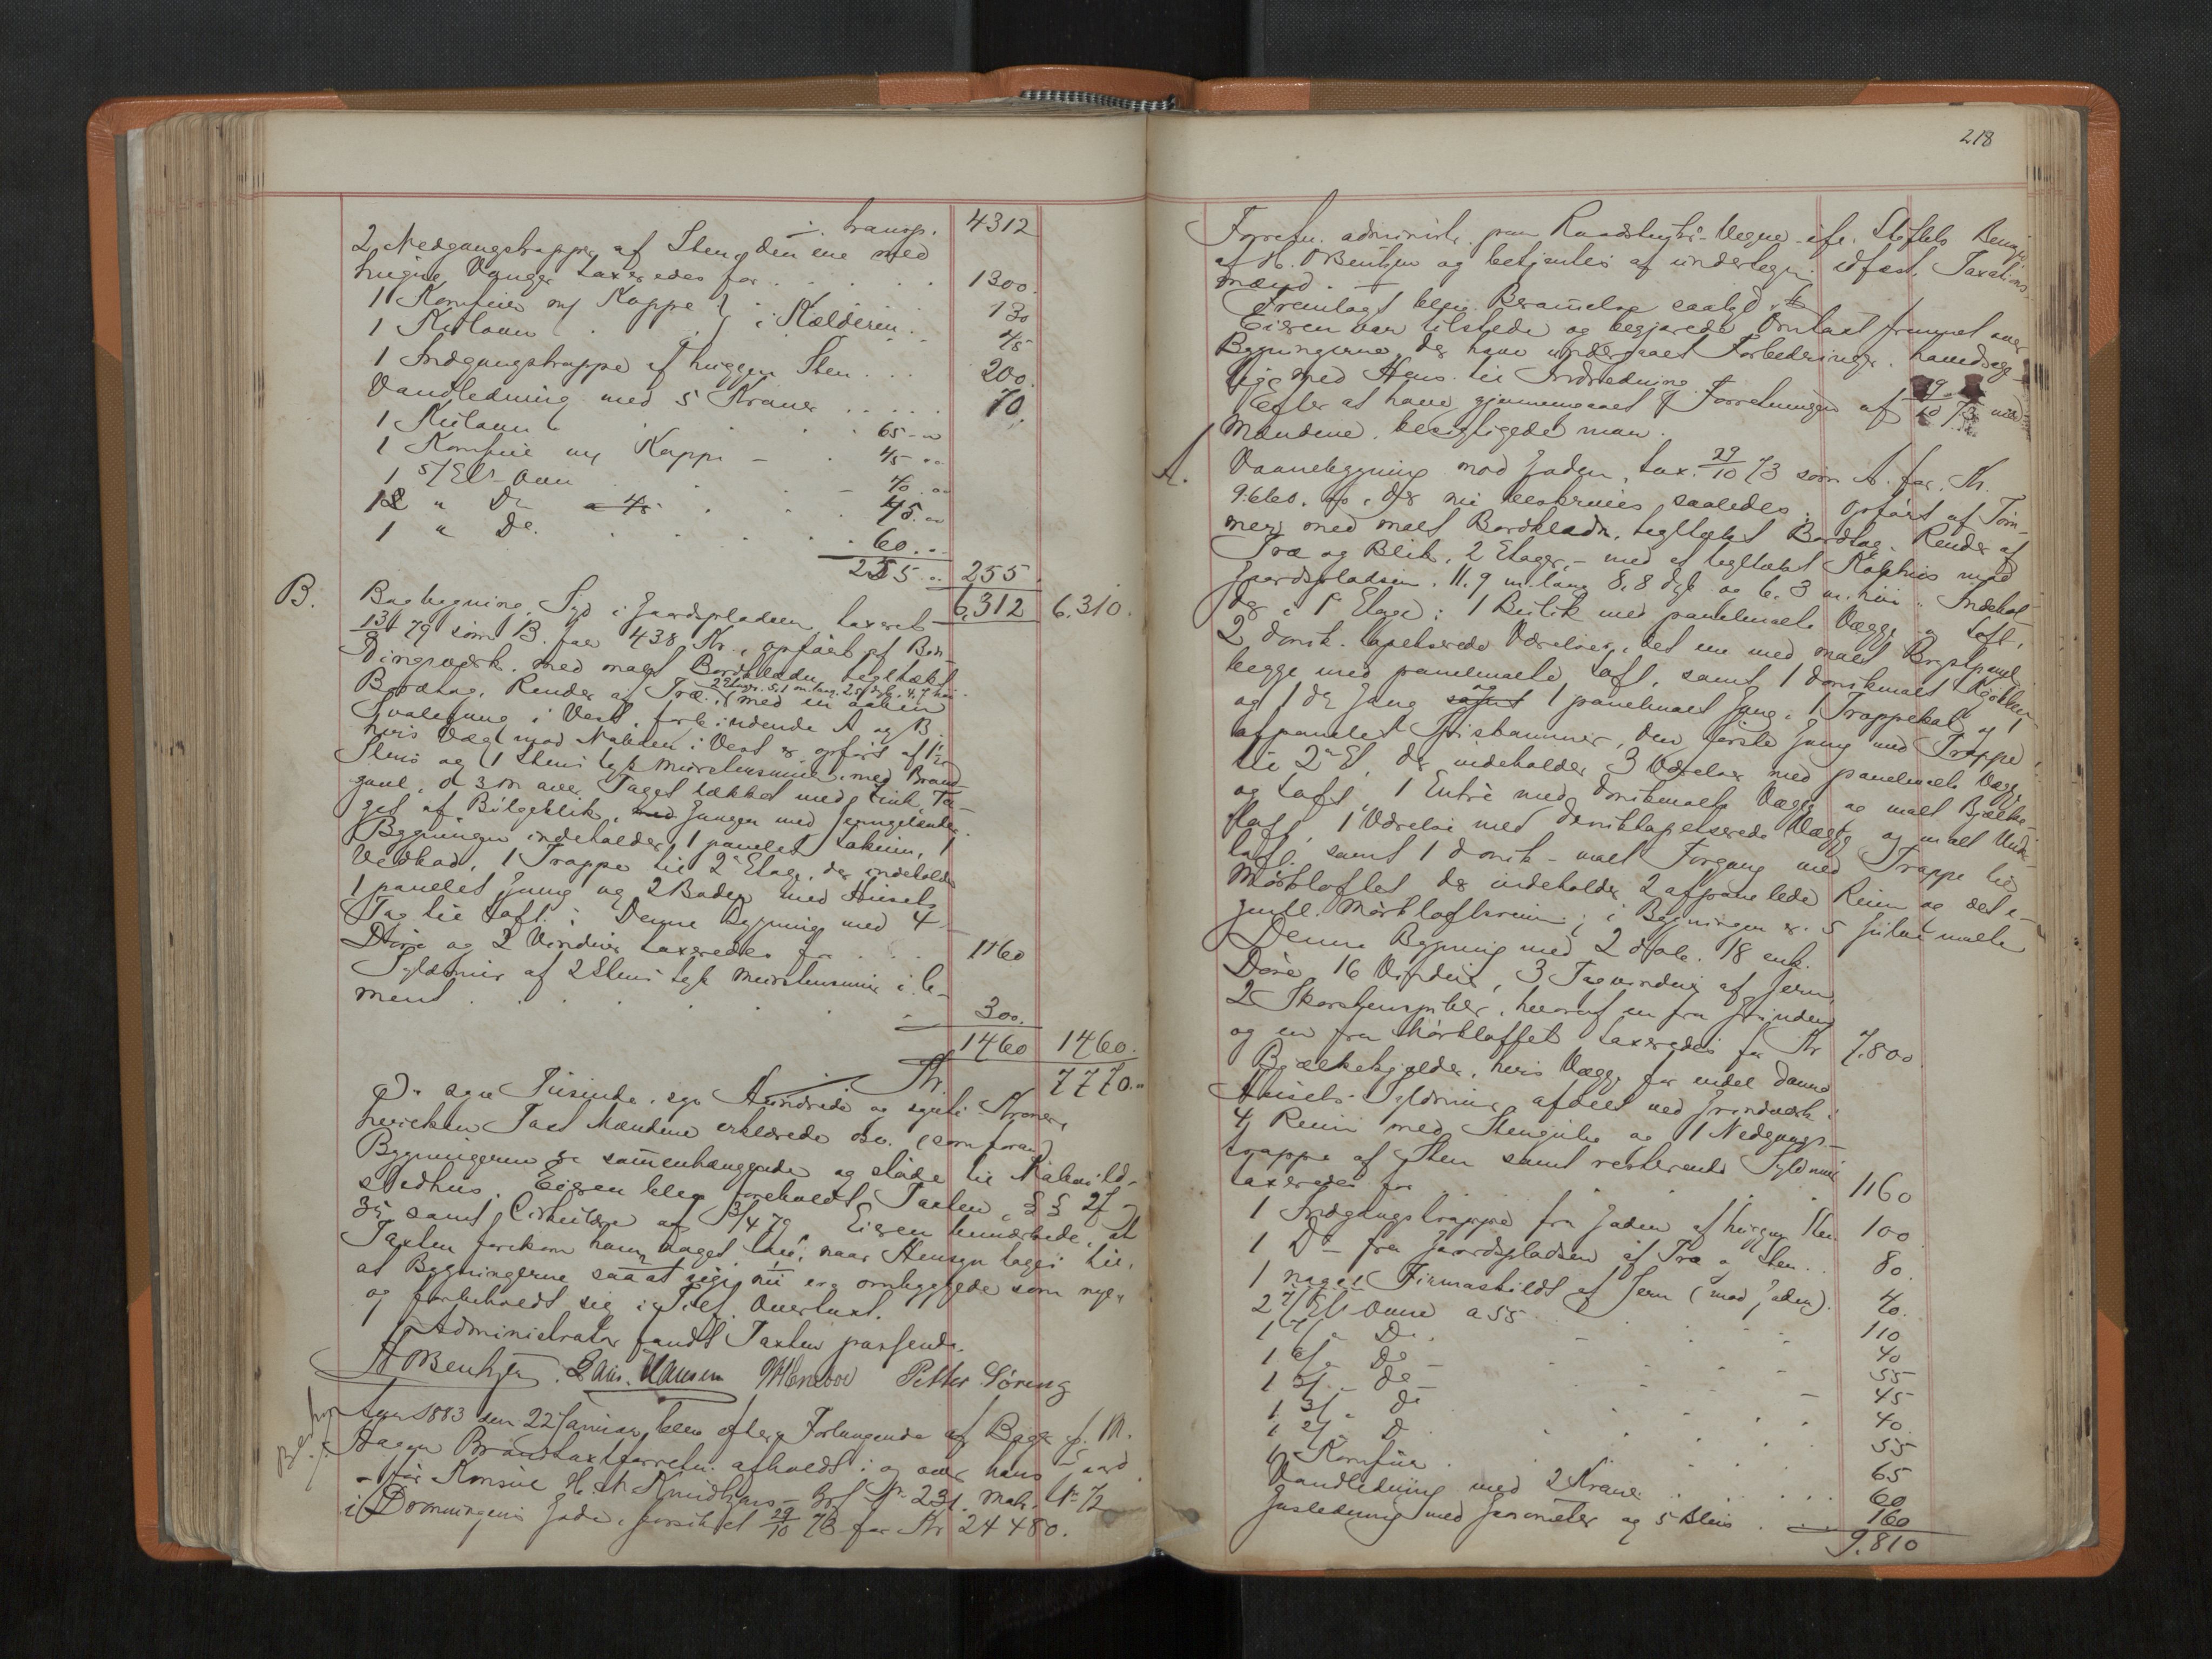 ÷ transp. 4312
2 Nedgangstrapper af Sten, den ene med
hugne Vanger taxeredes for . . . . 1300.
1 Komfur m/ Kappe } i Kælderen . . 130
1 Kulovn . . 45
1 Indgangstrappe af huggen Sten . . . 200.
Vandledning med 5 Kraner . . . . . 70.
1 Kulovn . . . . 65 - "
1 Komfur m/ Kappe - . 45 - "
1 5/ Et's-Ovn . . . - 40 . "
1 " Do . . . 45. "
1 " Do. . . . . . 60. "
255 " 255.
6.312 6.310.
B. Bagbygning, Syd i Gaardspladsen taxeret
13/8 79 som B. for 438 Kr., opført af Bin-
dingsværk med malt Bordklædn, tegltækt
2 Etager. 5,1 m. lang 2,5 dyb, 4,7 høi
Bordtag, Render af Træ. (med en aaben
Svalegang i Vest, forbindende A og B.
hvis Væg mod Naboen i Vest er opført af 1 1/2
Stens og 1 Stens tyk Murstensmur, med Brand-
gavl, 0,3 m over Taget tækket med Zink, Ta-
get af Bølgeblik, Gangen med Jerngelænder.
Bygningen indeholder 1 panelet Lokum, 1
Vedbod, 1 Trappe til 2den Etage, der indeholder
1 panelet Gang og 2 Boder med Husets
Tag til Loft. Denne Bygning med 4
Døre og 2 Vinduer taxeredes for . . . 1160
Syldmur af 2 Stens tyk Murstensmur i Ce-
ment . . . . . . 300.
1460 1460.
Kr. 7770. "
a) " syv Tusinde, syv Hundrede og sytti Kroner,
hvilken Taxt Mændene erklærede osv. (som foran)
Bygningerne er sammenhængende og støde til Nabo-ild-
stedhus. Eieren blev foreholdt Taxten, §§ 27 &
35 samt Cirkulære af 3/4 79. Eieren bemærkede, at
Taxten forekom ham noget lav, naar Hensyn toges til,
at Bygningerne saa at sige nu ere ombyggede som nye,
og forbeholdt sig i Tilf. Overtaxt.
Administrator fandt Taxten passende.
H O Bentzen. Lars Hansen Petter Søreng
Aar 1883 den 22 Januar blev efter Forlangende af Bager M.
Hagen Brandtaxtforretn. afholdt i og over hans Gaard
- før Konsul H. M. Knudtzons - Brf No 231. Matr. No 72
i Dronningens Gade, forsikret 29/10 73 for Kr 24480.
218
Forretn. administr. paa Raadstuens Vegne ifr. Stiftets Bevg
af H. O Bentzen og betjentes af undertegn. edfæst. Taxations-
mænd.
Fremlagt blev Beramelse saalyd.
Eieren var tilstede og begjærede Omtaxt fremmet over
Bygningerne, der have undergaaet Forbedringer, hovedsag-
lig med Hens. til Indredning.
Efter at have gjennemgaaet Forretningen af 29/10 73 med
Mændene, besigtigede man.
A. Vaanebygning mod Gaden, tax. 29/10 73 som A. for Kr.
9.660. og, der nu beskrives saaledes: opført af Tøm-
mer, med malt Bordklædn, tegltækt Bordtag, Render af
Træ og Blik, 2 Etager, - med et tegltækt Kophus mod
Gaardspladsen. 11,9 m. lang 8,8 dyb og 6,3 m. høi. Indehol-
der i 1ste Etage: 1 Butik med panelmalte Vægge og Loft,
2 donsk. tapetserede Værelser, det ene med malt Brystpanel,
begge med panelmalte Loft, samt 1 donskmalt Kjøkken
og 1 do Gang og 1 panelmalt Gang, 1 Trappekot og 1
afpanelet Spiskammer, den første Gang med Trappe
til 2den Et. der indeholder 3 Værelser med panelmalte Vægge
og Loft, 1 Entré med donskmalte Vægge og malt Bjælke-
loft, 1 Værelse med dansktapetserede Vægge og malt Under-
loft, samt 1 donsk-malt Forgang med Trappe til
Mørkloftet, der indeholder 2 afpanelede Rum og det ø-
vrige Mørkloftsrum; i Bygningen er 5 Gulve malte
Denne Bygning med 2 dobb. 18 enk.
Døre 16 Vinduer, 3 Tagvinduer af Jern,
2 Skorstenspiber, hvoraf en fra Grunden,
og en fra Mørkloftet taxeredes for Kr 7.800
Bjælkekjelder, hvis Vægge for endel danne
Husets Syldmur, afdelt ved Grindværk i
4 Rum med Stengulv og 1 Nedgangs-
trappe af Sten samt resterende Syldmur
taxeredes for . . . . . . 1160
1 Indgangstrappe fra Gaden af huggen Sten 100
1 Do - fra Gaardspladsen af Træ og Sten . . 80.
1 Firmaskildt af Jern (mod Gaden) . 40.
2 4/ Et's Ovne a 55 . . . 110
1 4/" Do . . . 40
1 6/" Do - . . 55
1 5/" do - . . 45
1 3/" do . . 40.
1 2/" D . . 55
1 Komfur . . . 65
Vandledning med 2 Kraner . . . . 60
Gasledning med Gasometer og 5 Blus . . . 160
9.810